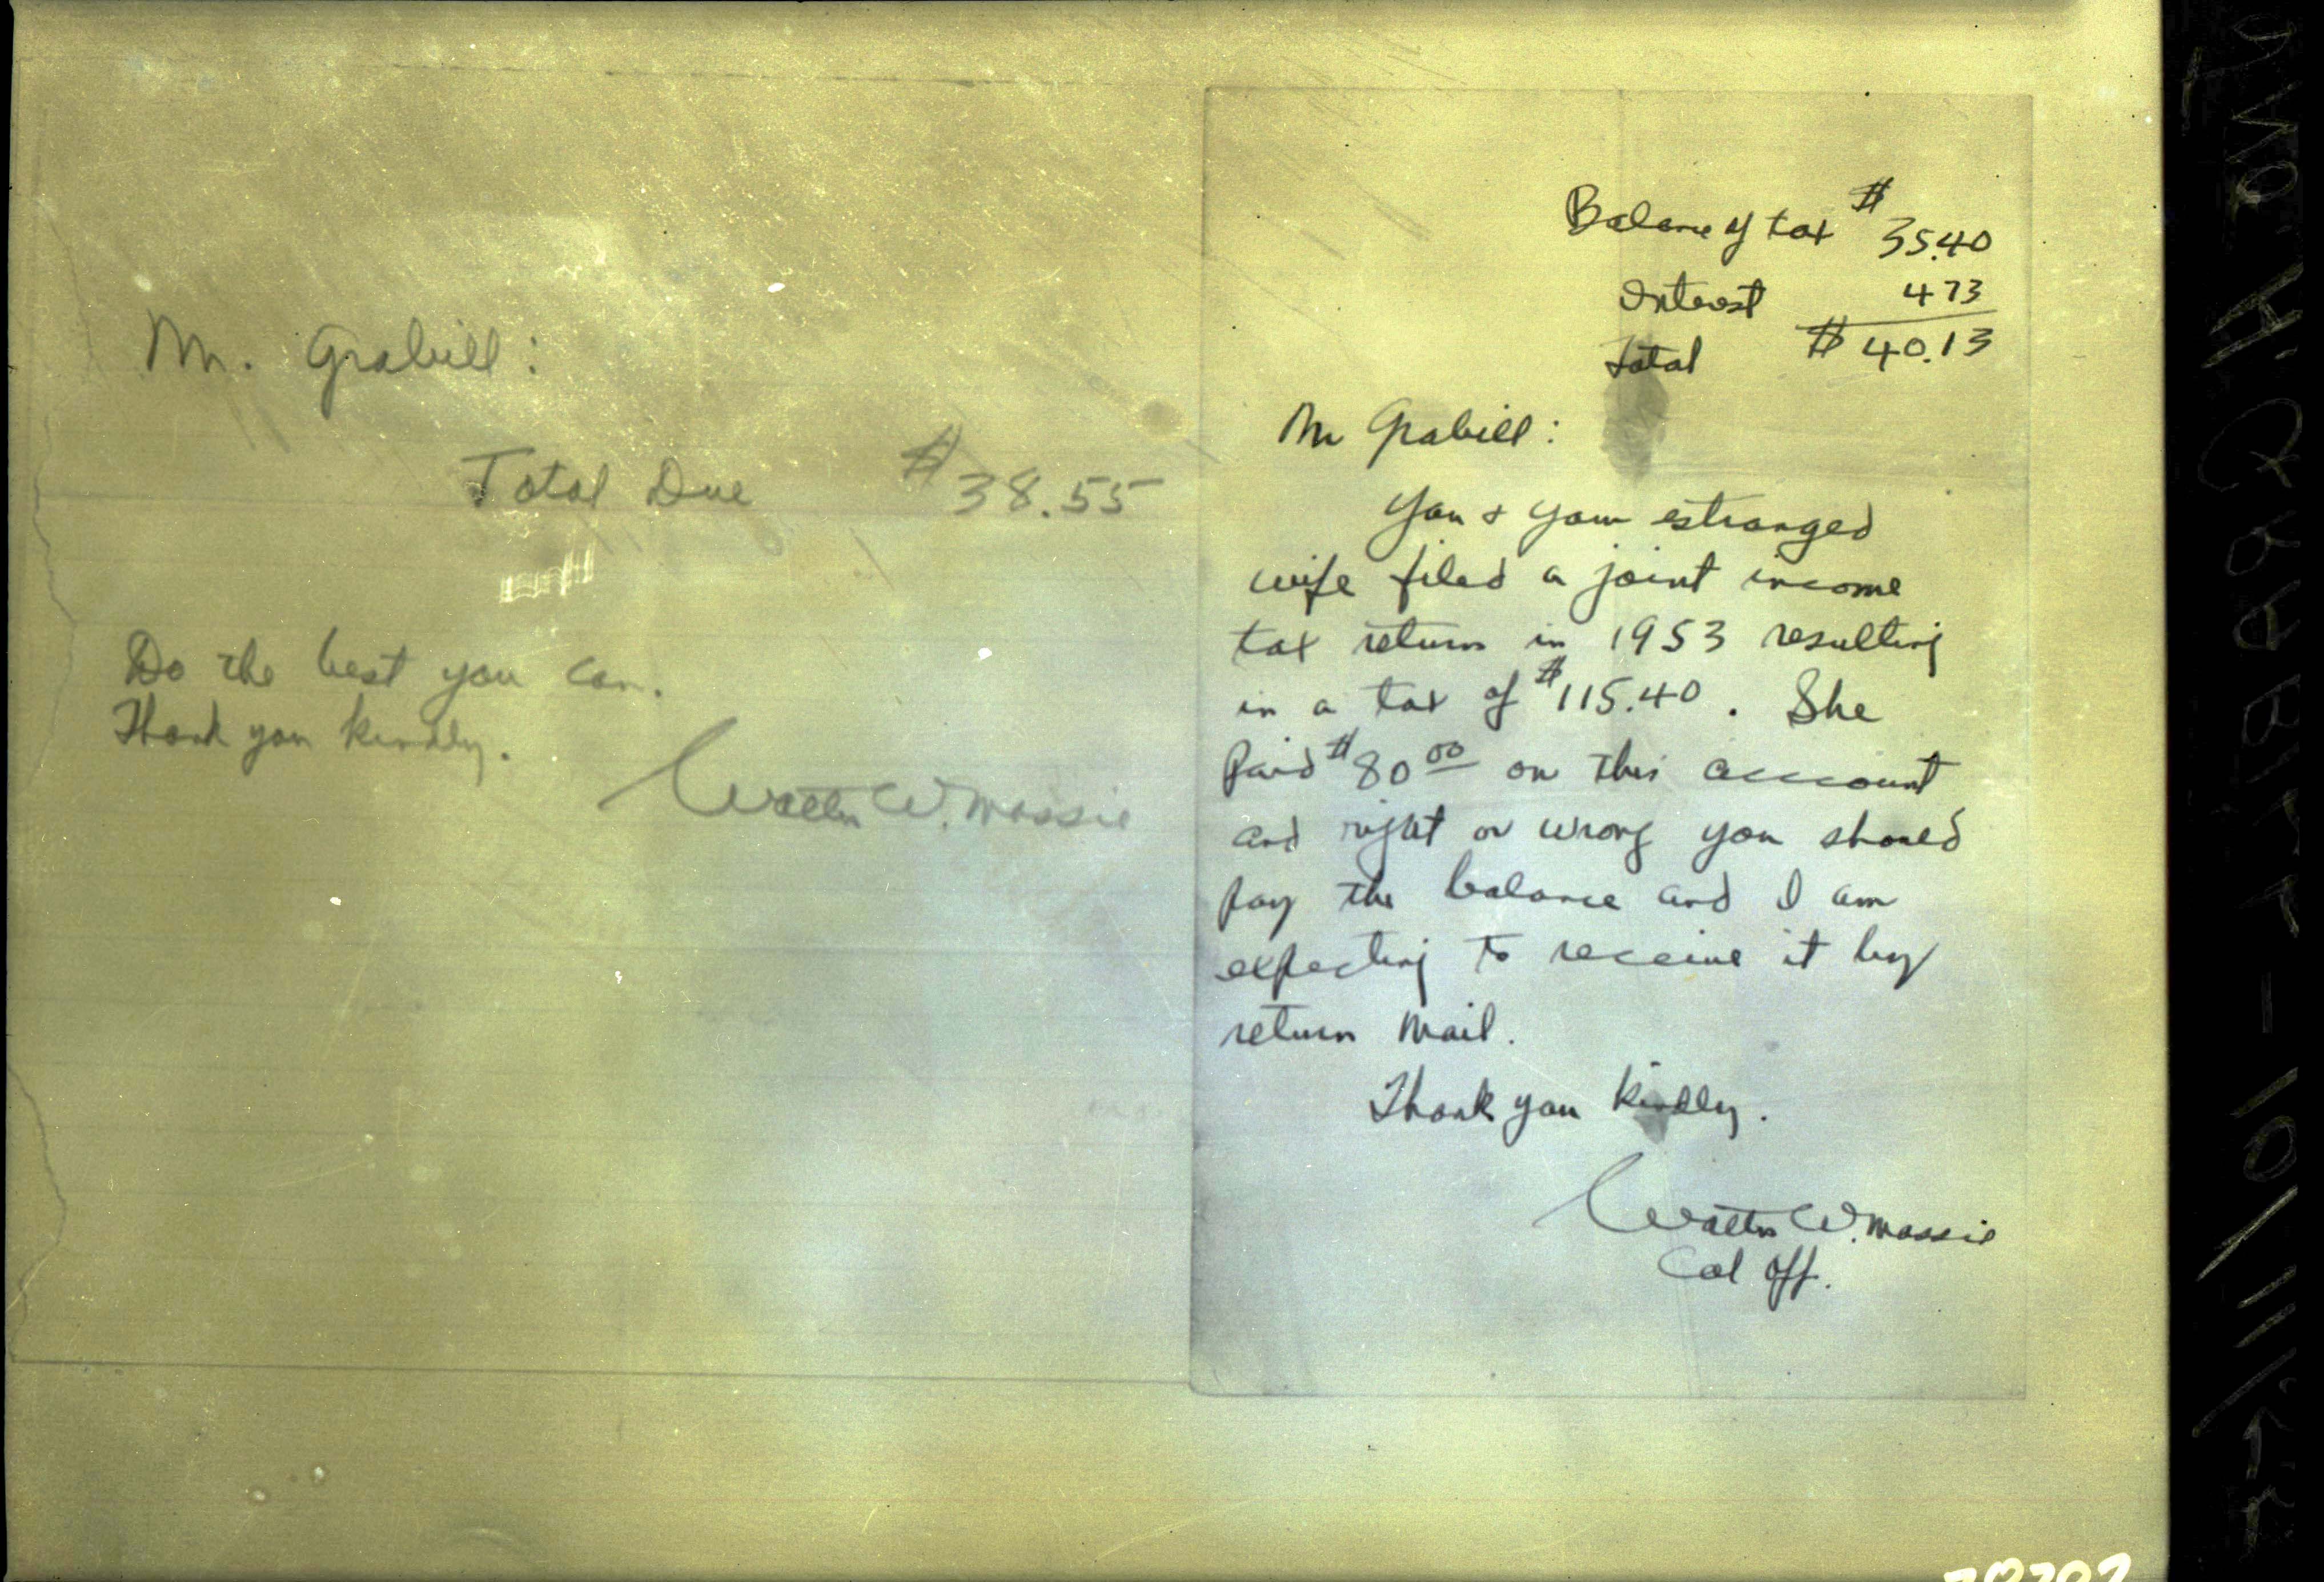 Mr. Grabill:
Total Due $38.55
Do the best you can.
Thank you kindly.
Walter W. Massie
Balance of tax $35.40
Interest 473
Total $40.13
Mr Grabill:
You & your estranged
wife filed a joint income
tax return in 1953 resulting
in a tax of $115.40. She
paid $80 00 on this account
and right or wrong you should
pay the balance and I am
expecting to receive it by
return mail.
Thank you kindly.
Walter W. Massie
Col Off.